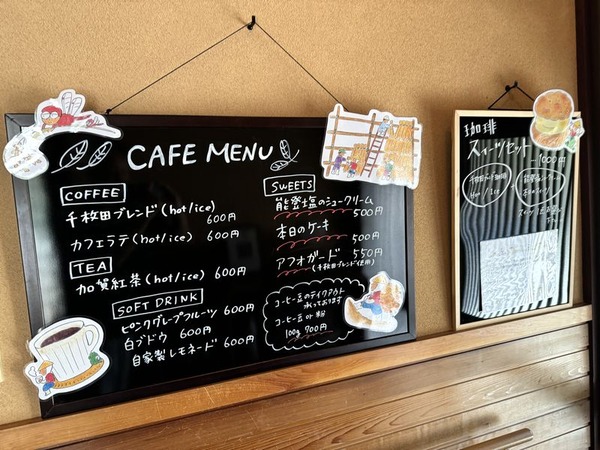 CAFE MENU
COFFEE
千枚田ブレンド(hot/ice)
600円
カフェラテ(hot/ice)
600円
TEA
加賀紅茶(hot/ice) 600円
SOFT DRINK
ピンクグレープフルーツ 600円
白ブドウ 600円
自家製レモネード 600円
SWEETS
能登塩のシュークリーム
500円
本日のケーキ
500円
アフォガード 550円
(千枚田ブレンド使用)
コーヒー豆のテイクアウト
承っております
コーヒー豆or粉
100g 700円
珈琲
スイーツセット
1000円